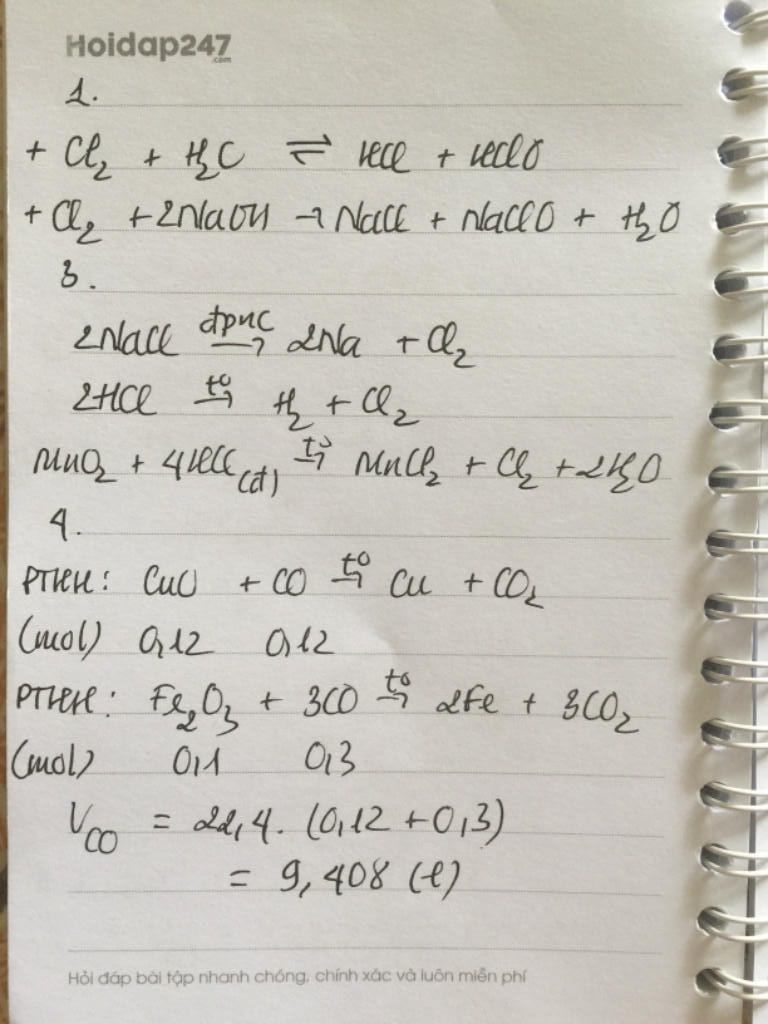 Hoidap247
.com
1.
+ Cl₂ + H₂O ⇌ HCl + HClO
+ Cl₂ + 2NaOH → NaCl + NaClO + H₂O
3.
2NaCl đpnc→ 2Na + Cl₂
2HCl t°→ H₂ + Cl₂
MnO₂ + 4HCl (đ) t°→ MnCl₂ + Cl₂ + 2H₂O
4.
PTHH: CuO + CO t°→ Cu + CO₂
(mol) 0,12 0,12
PTHH: Fe₂O₃ + 3CO t°→ 2Fe + 3CO₂
(mol) 0,1 0,3
V_CO = 22,4. (0,12 + 0,3)
= 9,408 (l)
Hỏi đáp bài tập nhanh chóng, chính xác và luôn miễn phí